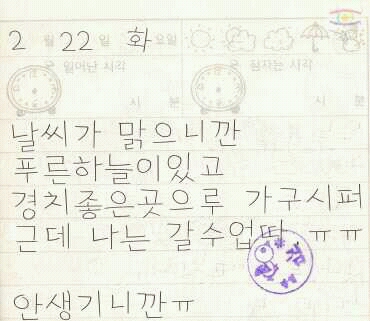 2 월 22 일 화 요일
일어난 시각 잠자는 시각
시 분 시 분
날씨가 맑으니깐
푸른하늘이있고
경치좋은곳으루 가구시퍼
근데 나는 갈수업따.ㅠㅠ
안생기니깐ㅠ